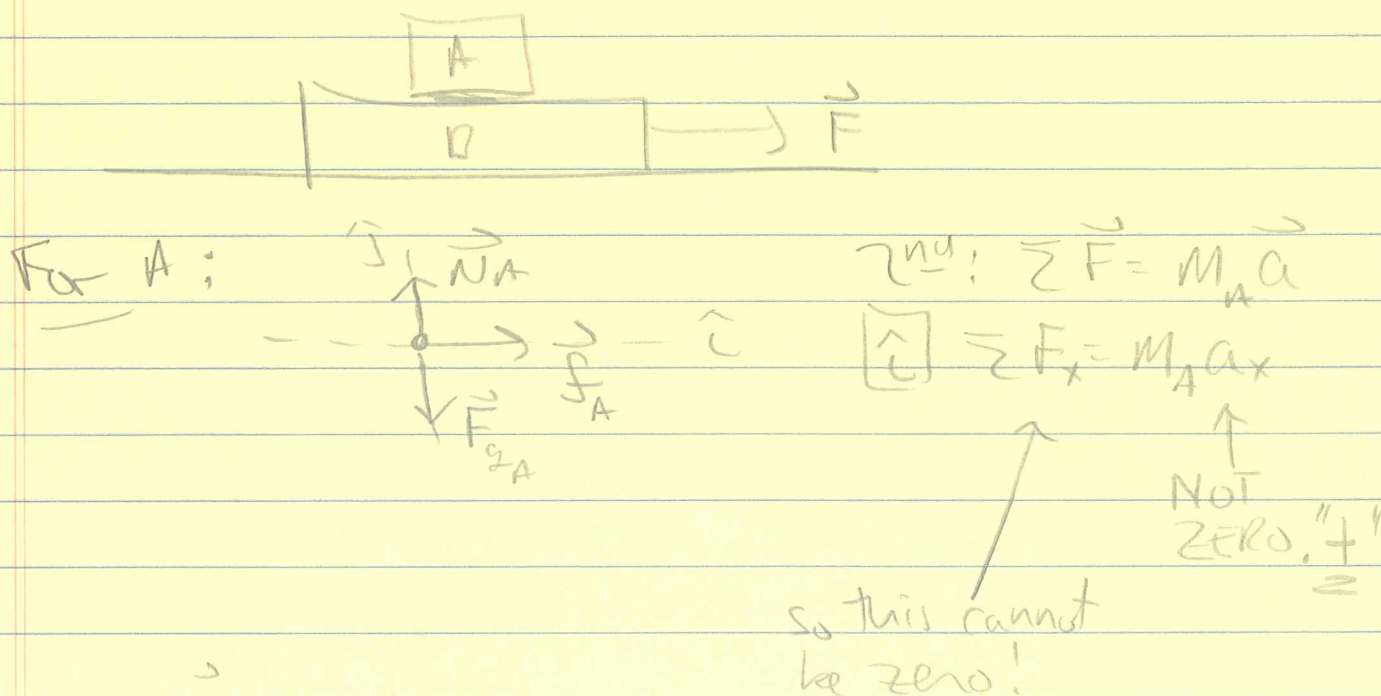 A
B
F⃗
For A:
ĵ
N⃗_A
f⃗_A
î
F⃗_gA
2nd: ΣF⃗ = M_A a⃗
[î] ΣF_x = M_A a_x
NOT
ZERO. "+"
so this cannot
be zero!